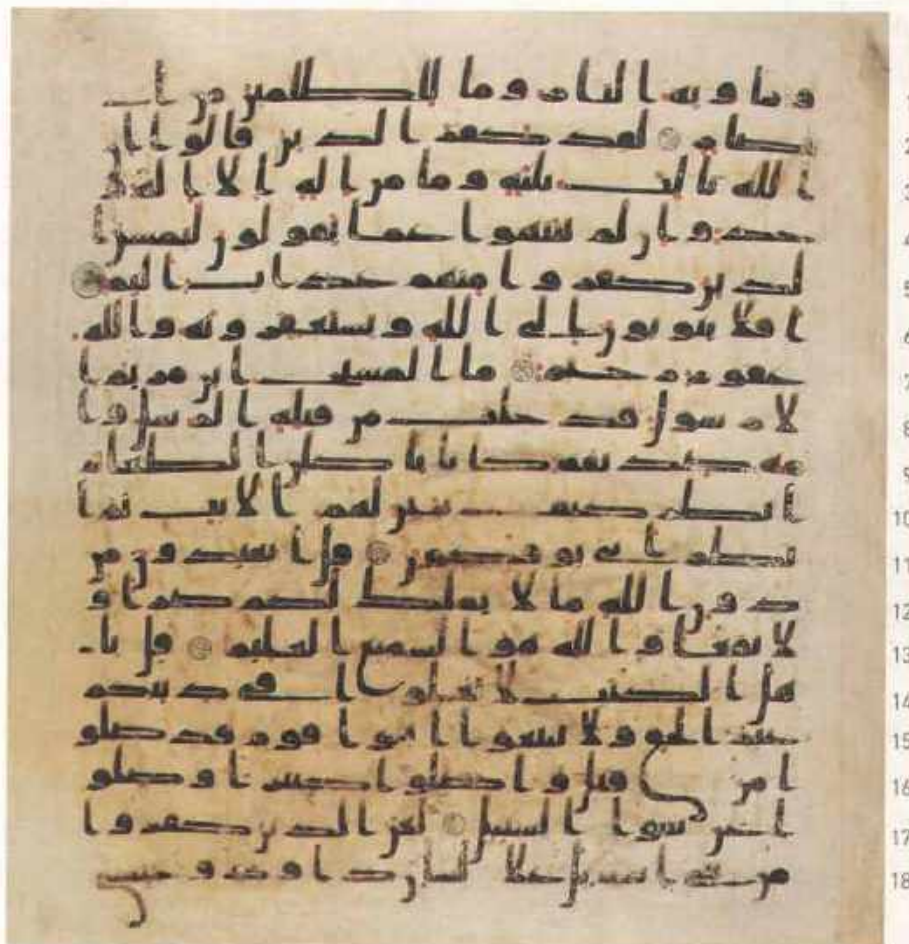 و ماويه النار وما للظلمين من ا 1
نصار لقد كفر الذين قالوا ان 2
الله ثالث ثلثه وما من اله الا اله و 3
حد وان لم ينتهوا عما يقولون ليمسن ا 4
لذين كفروا منهم عذاب اليم 5
افلا يتوبون الى الله ويستغفرونه والله 6
غفور رحيم ما المسيح ابن مريم ا 7
لا رسول قد خلت من قبله الرسل وا 8
مه صديقه كانا ياكلن الطعام 9
انظر كيف نبين لهم الايت ثم ا 10
نظر انى يوفكون قل اتعبدون من 11
دون الله ما لا يملك لكم ضرا و 12
لا نفعا والله هو السميع العليم قل يا 13
هل الكتب لا تغلوا في دينكم 14
غير الحق ولا تتبعوا اهوا قوم قد ضلو 15
ا من قبل واضلوا كثيرا وضلو 16
ا عن سوا السبيل لعن الذين كفروا 17
من بني اسريل على لسان داود وعيسى 18